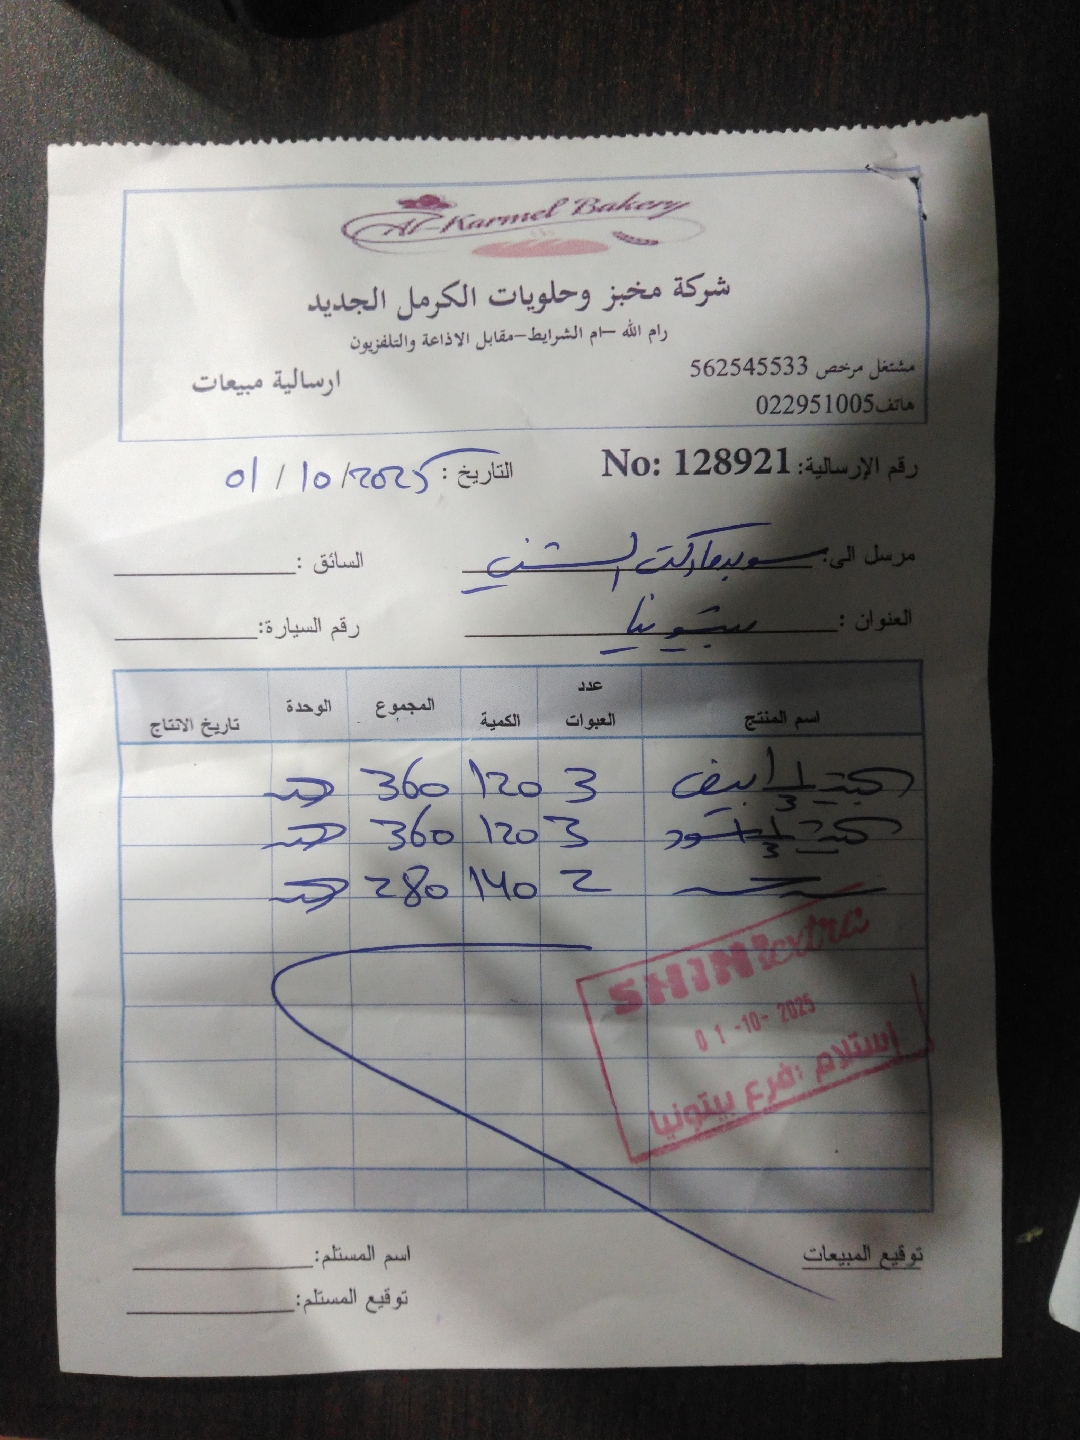 Al-Karmel Bakery
شركة مخبز وحلويات الكرمل الجديد
رام الله -ام الشرايط-مقابل الاذاعة والتلفزيون
مشتغل مرخص 562545533
ارسالية مبيعات
هاتف022951005
رقم الإرسالية: No: 128921 التاريخ : 01/10/2025
مرسل الى: سوبرماركت الشني السائق :
العنوان : بيتونيا رقم السيارة:
اسم المنتج عدد العبوات الكمية المجموع الوحدة تاريخ الانتاج
1/3 ابيض 3 120 360
1/3 اسود 3 120 360
2 140 280
SHINI extra
01-10-2025
إستلام :فرع بيتونيا
توقيع المبيعات اسم المستلم:
توقيع المستلم: